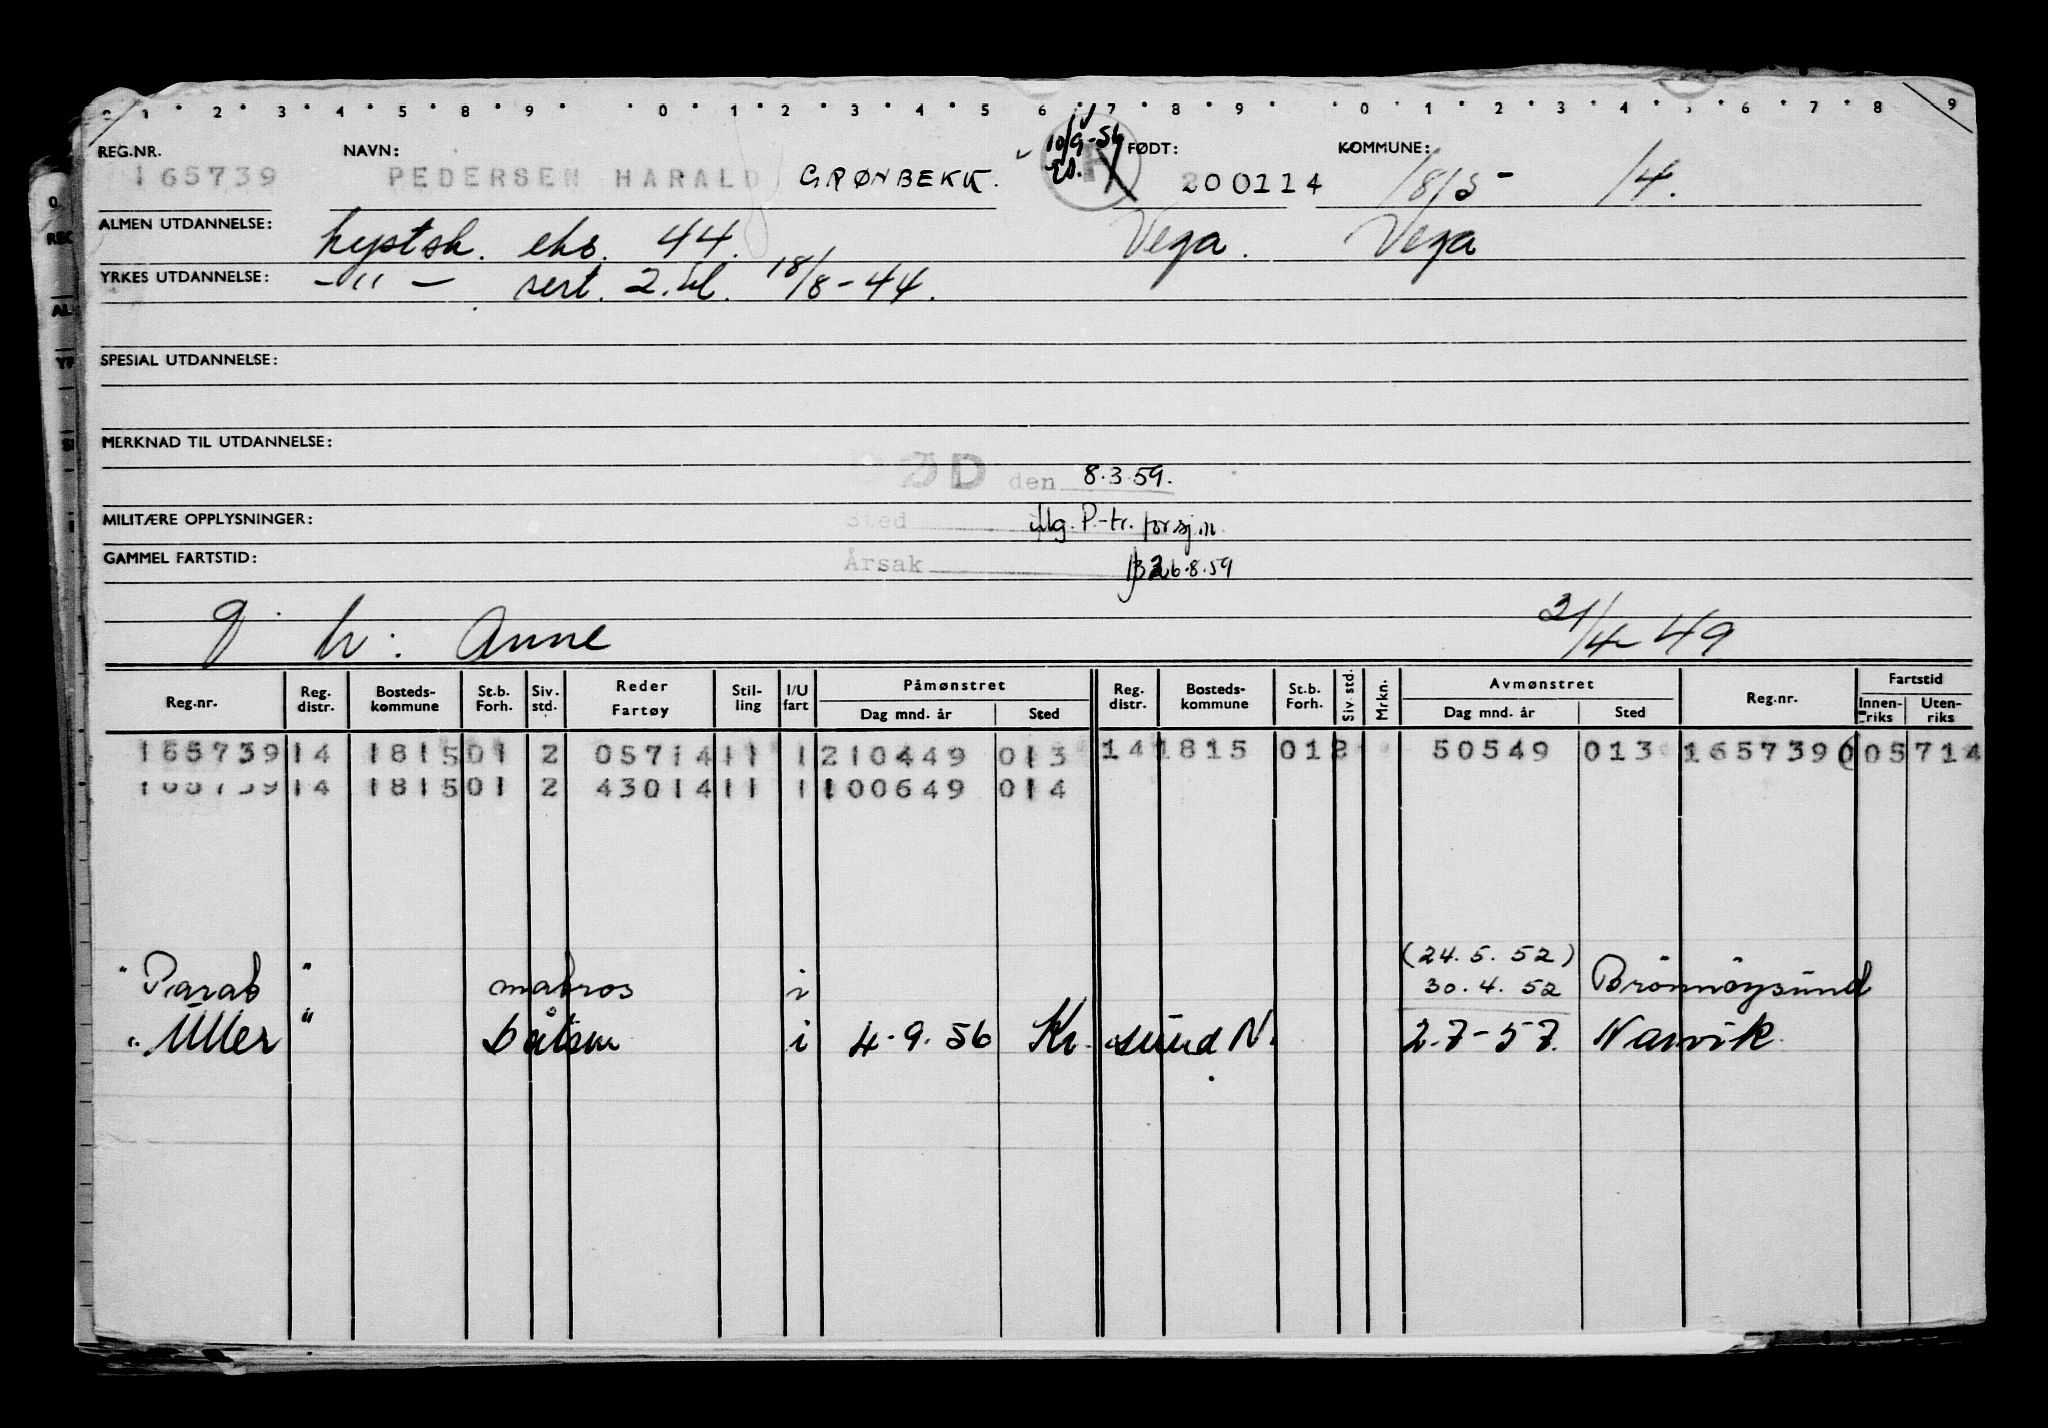 1 2 3 4 5 8 9 0 1 2 3 4 5 6 7 8 9 0 1 2 3 4 5 6 7 8 9
REG.NR. NAVN: 10/9-56 FØDT: KOMMUNE:
165739 PEDERSEN HARALD GRØNBEKK. 200114 1815 - 14.
ALMEN UTDANNELSE: kystsk. eks. 44. Vega. Vega
YRKES UTDANNELSE: -"- sert. 2.kl. 18/8-44.
SPESIAL UTDANNELSE:
MERKNAD TIL UTDANNELSE:
DØD den 8.3.59.
MILITÆRE OPPLYSNINGER: Sted iflg. P.-tr. for sj.m.
GAMMEL FARTSTID: Årsak 26.8.59
g. h: Anne 21/4-49
Reg.nr. Reg. distr. Bosteds-kommune St.b. Forh. Siv. std. Reder Fartøy Stil-ling I/U fart Påmønstret Dag mnd. år Sted Reg. distr. Bosteds-kommune St.b. Forh. Siv. std. Mrkn. Avmønstret Dag mnd. år Sted Reg.nr. Fartstid Innen-riks Uten-riks
165739 14 1815 01 2 05714 11 1 210449 013 14 1815 01 2 50549 013 165739 005714
165739 14 1815 01 2 43014 11 1 100649 014
(24.5.52)
"Parat" matros i 30.4.52 Brönnöysund
"Uller" båtsm i 4.9.56 Kr.sund N. 2.7-57. Narvik.